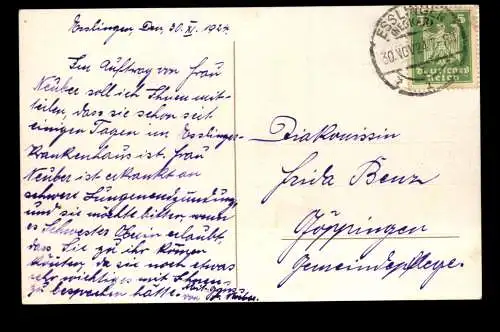 Esslingen, Den, 30. XI. 1924
Im Auftrag von Frau
Neuber soll ich Ihnen mit-
teilen, dass sie schon seit
einigen Tagen im Esslinger-
krankenhaus ist. Frau
Neuber ist erkrankt an
schwere Lungenendzundung
und sie möchte bitten, wenn
es Schwester Oberin erlaubt,
dass Sie zu ihr kommen
könnten, da sie noch etwas
sehr wichtiges mit Ihnen
zu besprechen hätte. Mit Gruss
von
ESSLINGEN
(NECKAR)
30.NOV.24
5
Deutsches
Reich
Diakonissin
Frida Benz
Göppingen
Gemeindepflege.